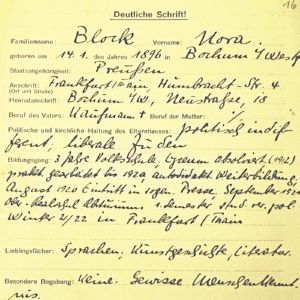 16
Deutliche Schrift!
Familienname: Block Vorname: Nora.
geboren am 14. 1. des Jahres 1896 in Bochum i/Westf
Staatsangehörigkeit: Preußen
Anschrift: Frankfurt Main, Humbracht-Str. 4
(Ort und Straße)
Heimatanschrift: Bochum i/W., Neustraße, 18
Beruf des Vaters: Kaufmann † Beruf der Mutter: /
Politische und kirchliche Haltung des Elternhauses: politisch indif
ferent, liberale Juden
Bildungsgang: 3 Jahre Volksschule, Lyceum absolviert (1912)
prakt. gearbeitet bis 1920, autodidakt. Weiterbildung,
August 1920 Eintritt in sogen. Presse, September 192
Ober-Realschul Abiturium. 1. Semester stud. rer. pol
Winter 21/22 in Frankfurt/Main
Lieblingsfächer: Sprachen, Kunstgeschichte, Literatur.
Besondere Begabung: Keine. Gewisse Menschenkennt-
nis.